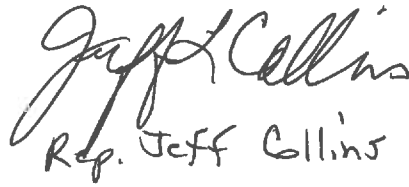 Jeff L Collins
Rep. Jeff Collins